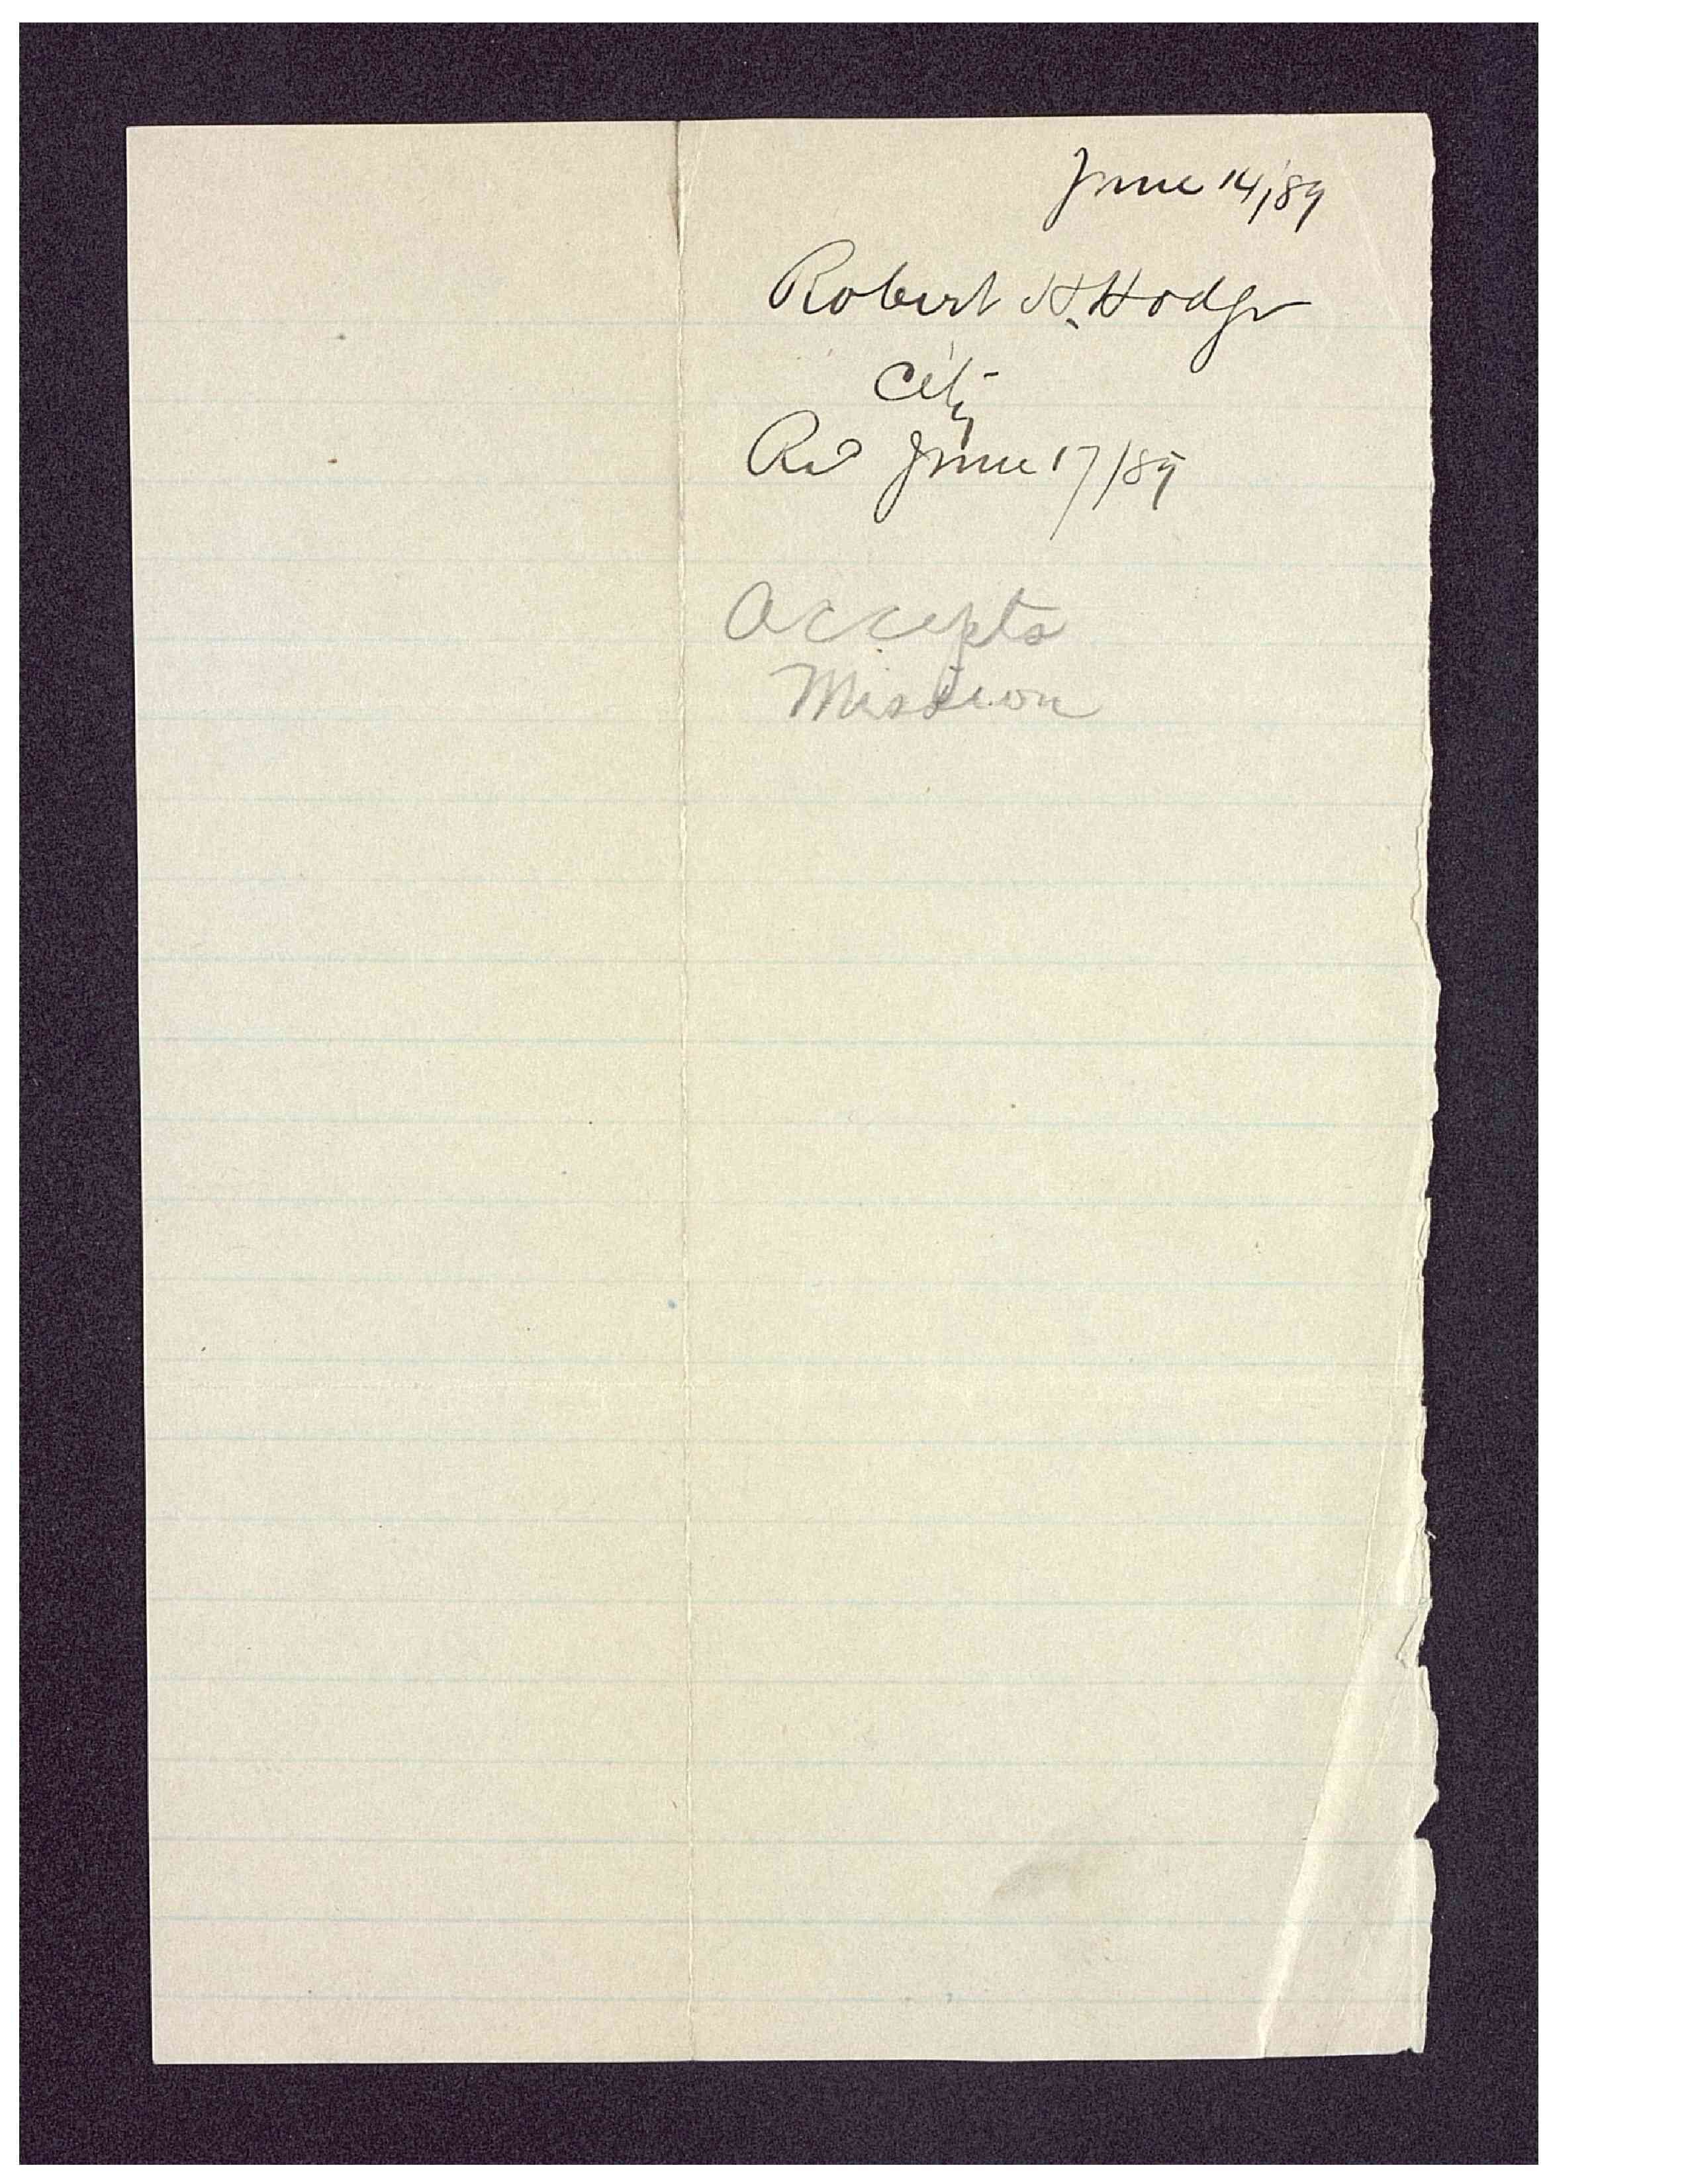 June 14, '89
Robert H. Hodge
City
Rd June 17/89
Accepts
Mission